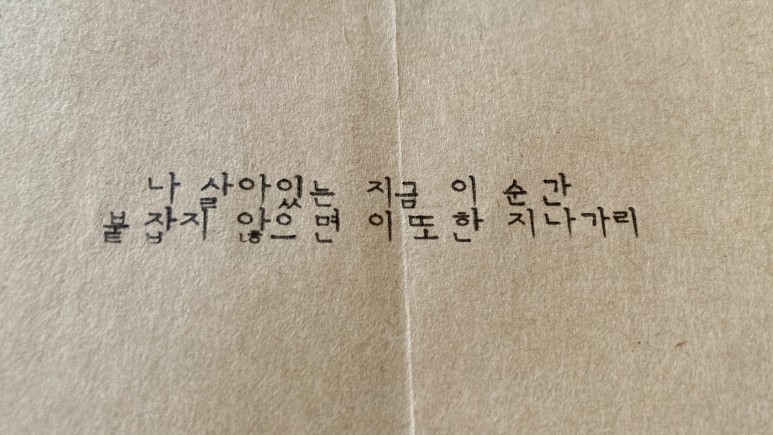 나 살아있는 지금 이 순간
붙잡지 않으면 이또한 지나가리